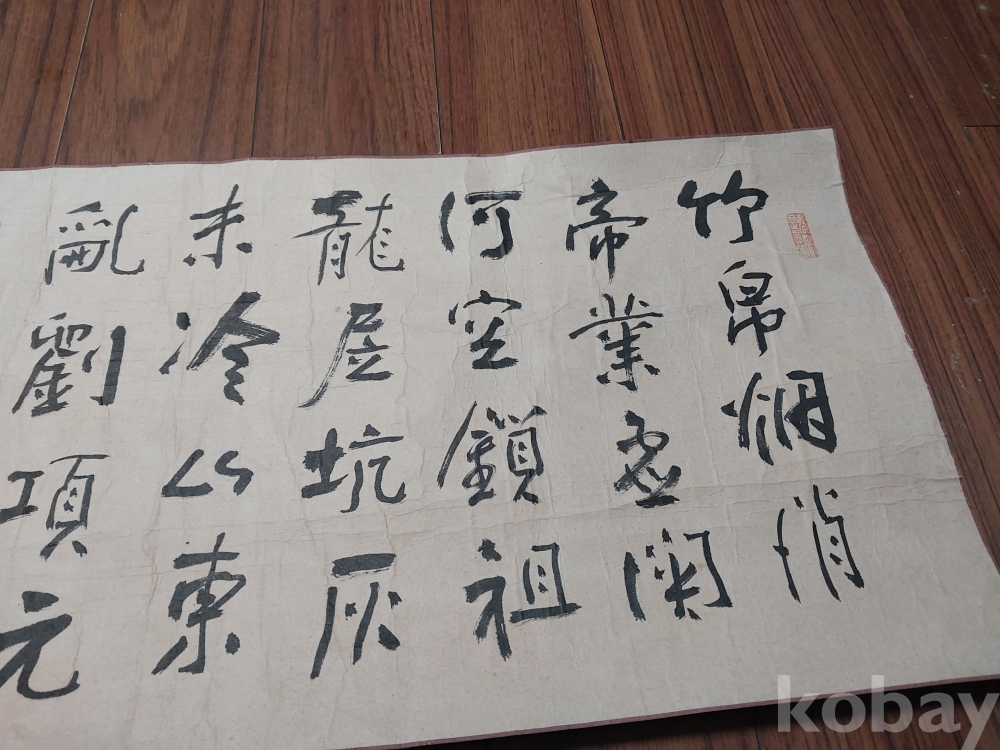 竹帛烟消
帝業虚関
河空鎖祖
龍居坑灰
未冷山東
亂劉項元
kobay